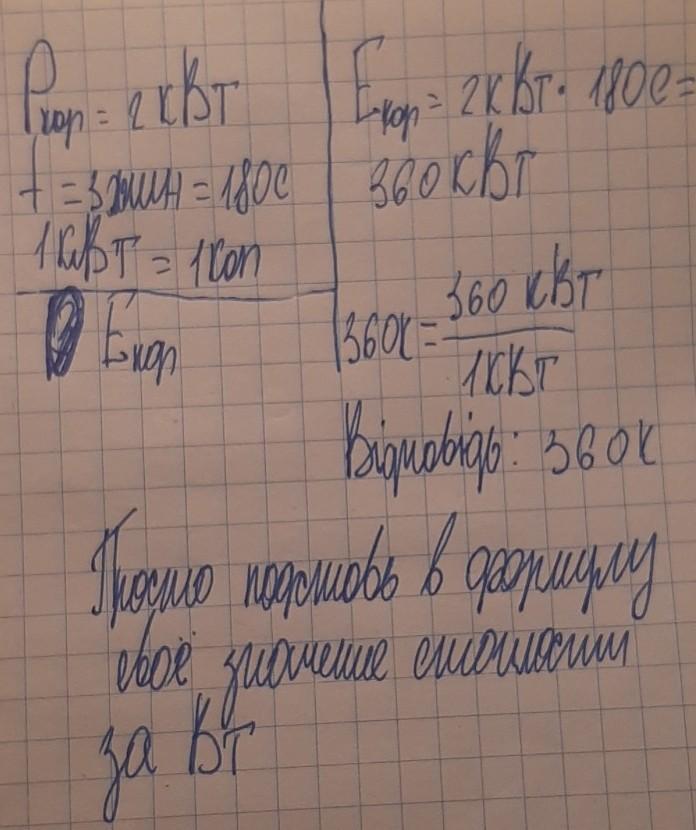 Pкор = 2 кВт
t = 3 мин = 180с
1КВТ = 1коп
Eкор
Eкор = 2кВт · 180с =
360 кВт
360к = 360 кВт / 1КВТ
Відповідь: 360к
Просто подставь в формулу
своё значение стоимости
за Вт